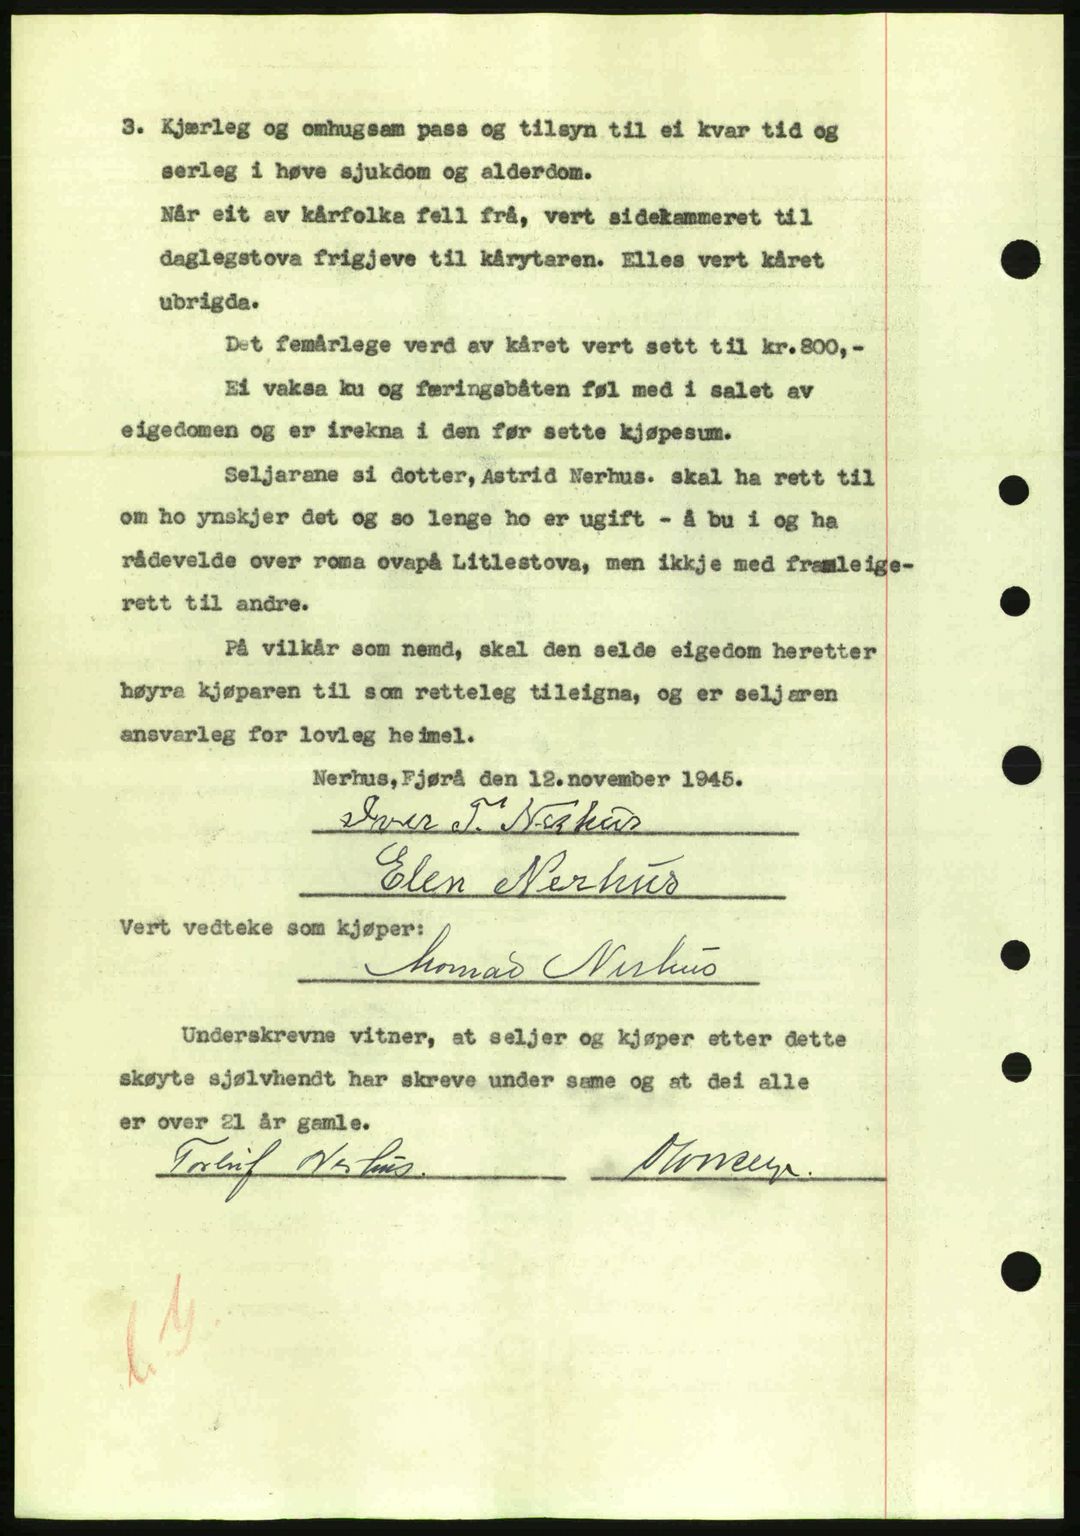 3. Kjærleg og omhugsam pass og tilsyn til ei kvar tid og
serleg i høve sjukdom og alderdom.
Når eit av kårfolka fell frå, vert sidekammeret til
daglegstova frigjeve til kårytaren. Elles vert kåret
ubrigda.
Det femårlege verd av kåret vert sett til kr.800,-
Ei vaksa ku og færingsbåten føl med i salet av
eigedomen og er irekna i den før sette kjøpesum.
Seljarane si dotter, Astrid Nerhus. skal ha rett til
om ho ynskjer det og so lenge ho er ugift - å bu i og ha
rådevelde over roma ovapå Litlestova, men ikkje med framleige-
rett til andre.
På vilkår som nemd, skal den selde eigedom heretter
høyra kjøparen til som retteleg tileigna, og er seljaren
ansvarleg for lovleg heimel.
Nerhus, Fjørå den 12.november 1945.
Iver T. Nerhus
Elen Nerhus
Vert vedteke som kjøper:
Nerhus
Underskrevne vitner, at seljer og kjøper etter dette
skøyte sjølvhendt har skreve under same og at dei alle
er over 21 år gamle.
Torleif Nerhus.